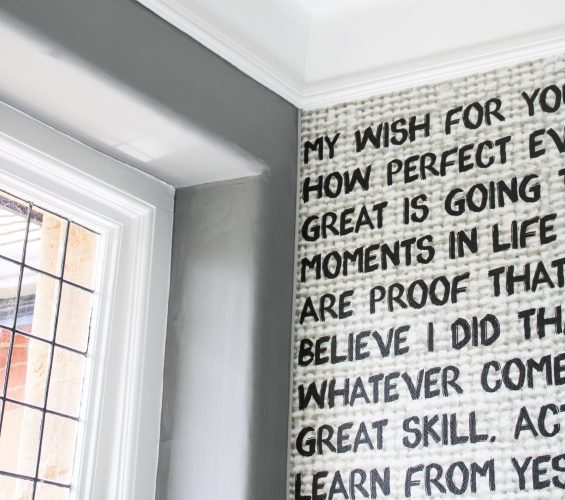 MY WISH FOR YOU
HOW PERFECT EV
GREAT IS GOING T
MOMENTS IN LIFE
ARE PROOF THAT
BELIEVE I DID THA
WHATEVER COME
GREAT SKILL. ACT
LEARN FROM YES